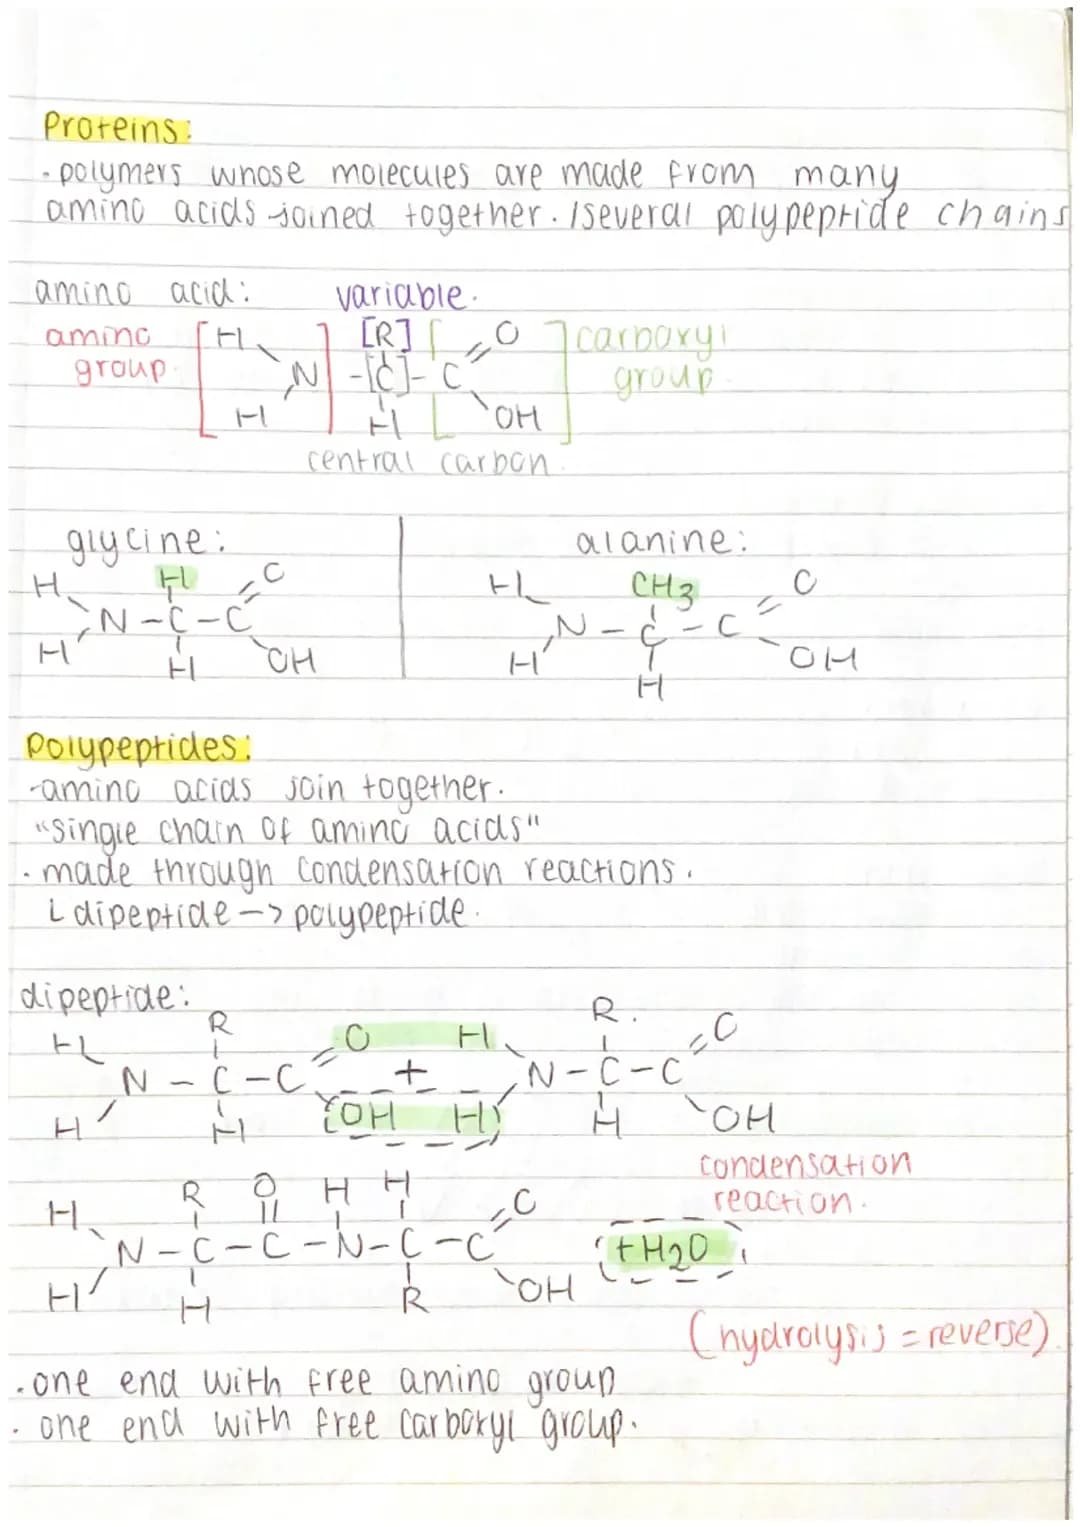 Proteins:
· polymers whose molecules are made from many
amino acids joined together. /several polypeptide chains
amino acid: variable.
amino [H [R] [ O ] carboxyl
group. N] -[C]- C group.
H H OH
central carbon.
glycine: alanine:
H H O H CH3 O
N-C-C N-C-C
H H OH H H OH
Polypeptides:
-amino acids join together.
"single chain of amino acids"
· made through condensation reactions.
L dipeptide -> polypeptide.
dipeptide:
H R O H R. O
N-C-C + N-C-C
H H OH H H OH
condensation
reaction.
H R O H H O
N-C-C-N-C-C +H2O
H H R OH
(hydrolysis = reverse).
· one end with free amino group
· one end with free carboxyl group.